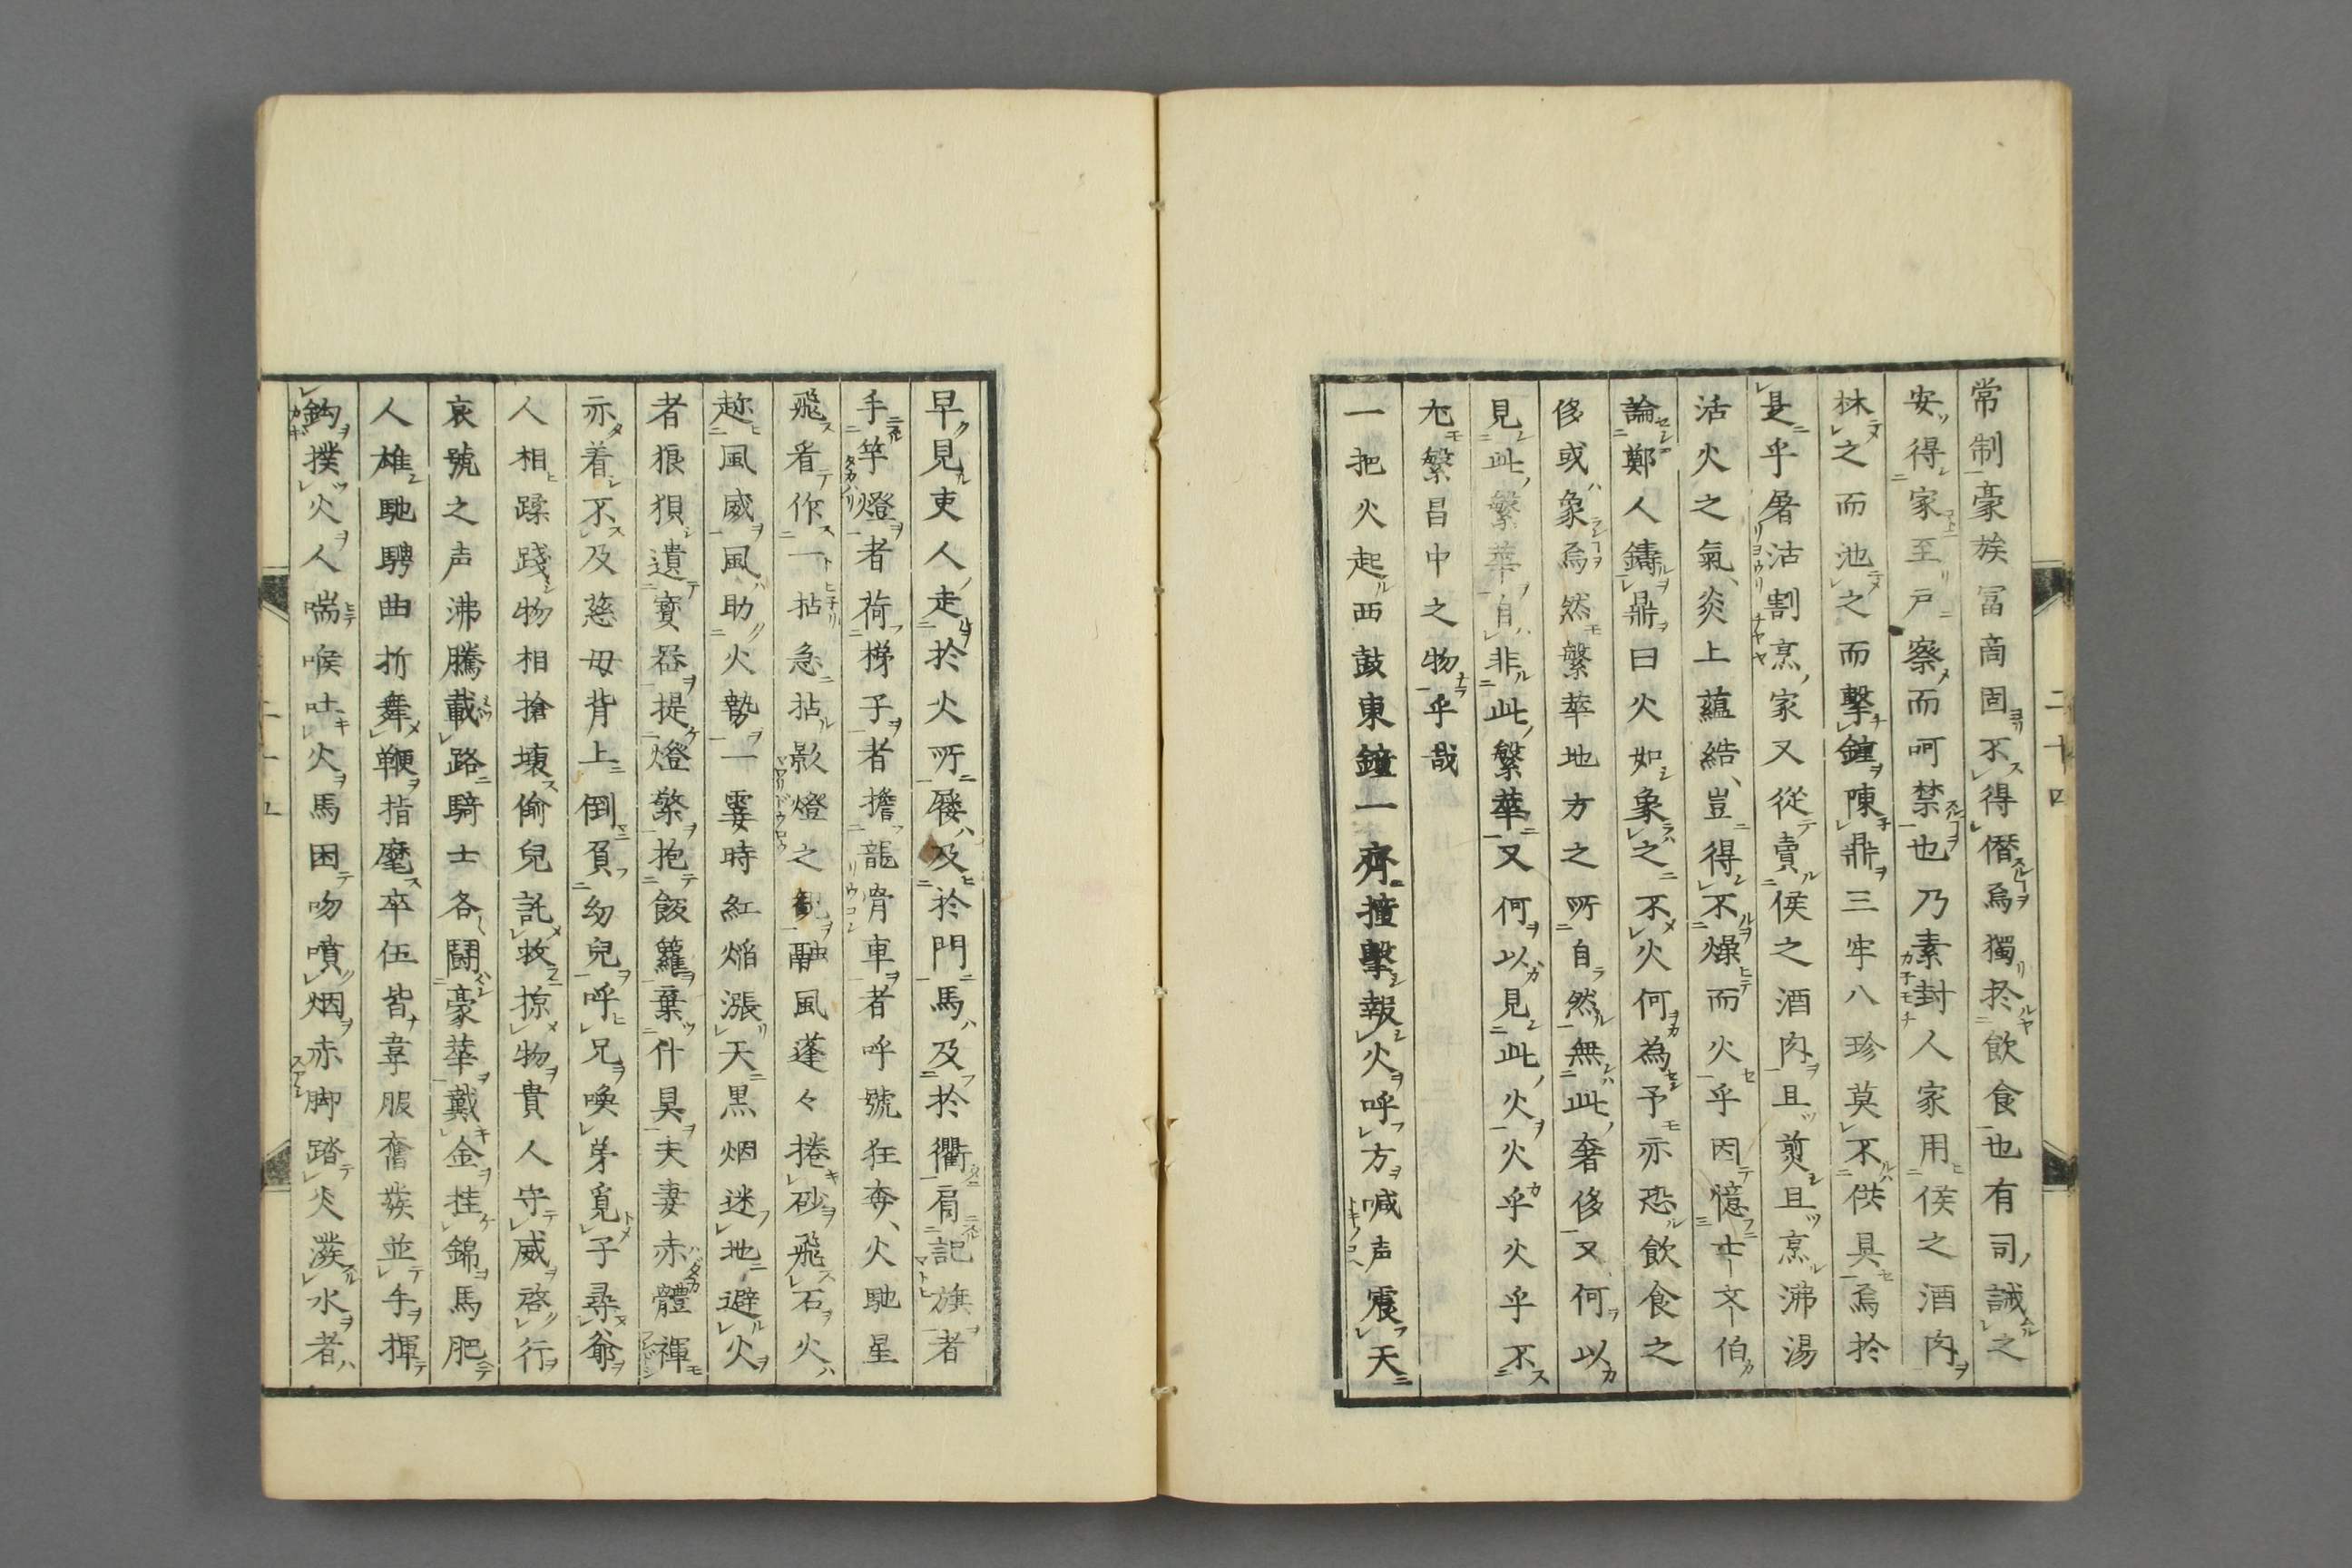 常制豪族冨商固不得僭爲獨於飲食也有司誡之
安得家至戸察而呵禁也乃素封人家用侯之酒肉
林之而池之而擊鐘陳鼎三牢八珍莫不供具焉於
是乎屠沽割烹家又従賣侯之酒肉且煎且烹沸湯
活火之氣炎上蘊結豈得不燥而火乎因憶士文伯
論鄭人鑄鼎曰火如象之不火何為予亦恐飲食之
侈或象焉然繁華地方之所自然無此奢侈又何以
見此繁華自非此繁華又何以見此火火乎火乎不
尤繁昌中之物乎哉
一把火起西鼓東鐘一齊撞擊報火呼方喊声震天
二十四
早見吏人走於火所屐及於門馬及於衢肩記旗者
手竿燈者荷梯子者擔龍骨車者呼號狂奔火馳星
飛看作一拈急拈影燈之観融風蓬々捲砂飛石火
趂風威風助火勢一霎時紅焔漲天黒烟迷地避火
者狼狽遺寳器提燈檠抱飯籮棄什具夫妻赤體褌
亦着不及慈母背上倒負幼兒呼兄喚弟覓子尋爺
人相蹂踐物相搶壊偷兒託救掠物貴人守威啓行
哀號之声沸騰載路騎士各闘豪華戴金挂錦馬肥
人雄馳騁曲折舞鞭指麾卒伍皆韋服奮𦾔並手揮
鈎撲火人喘喉吐火馬困吻噴烟赤脚踏火溌水者